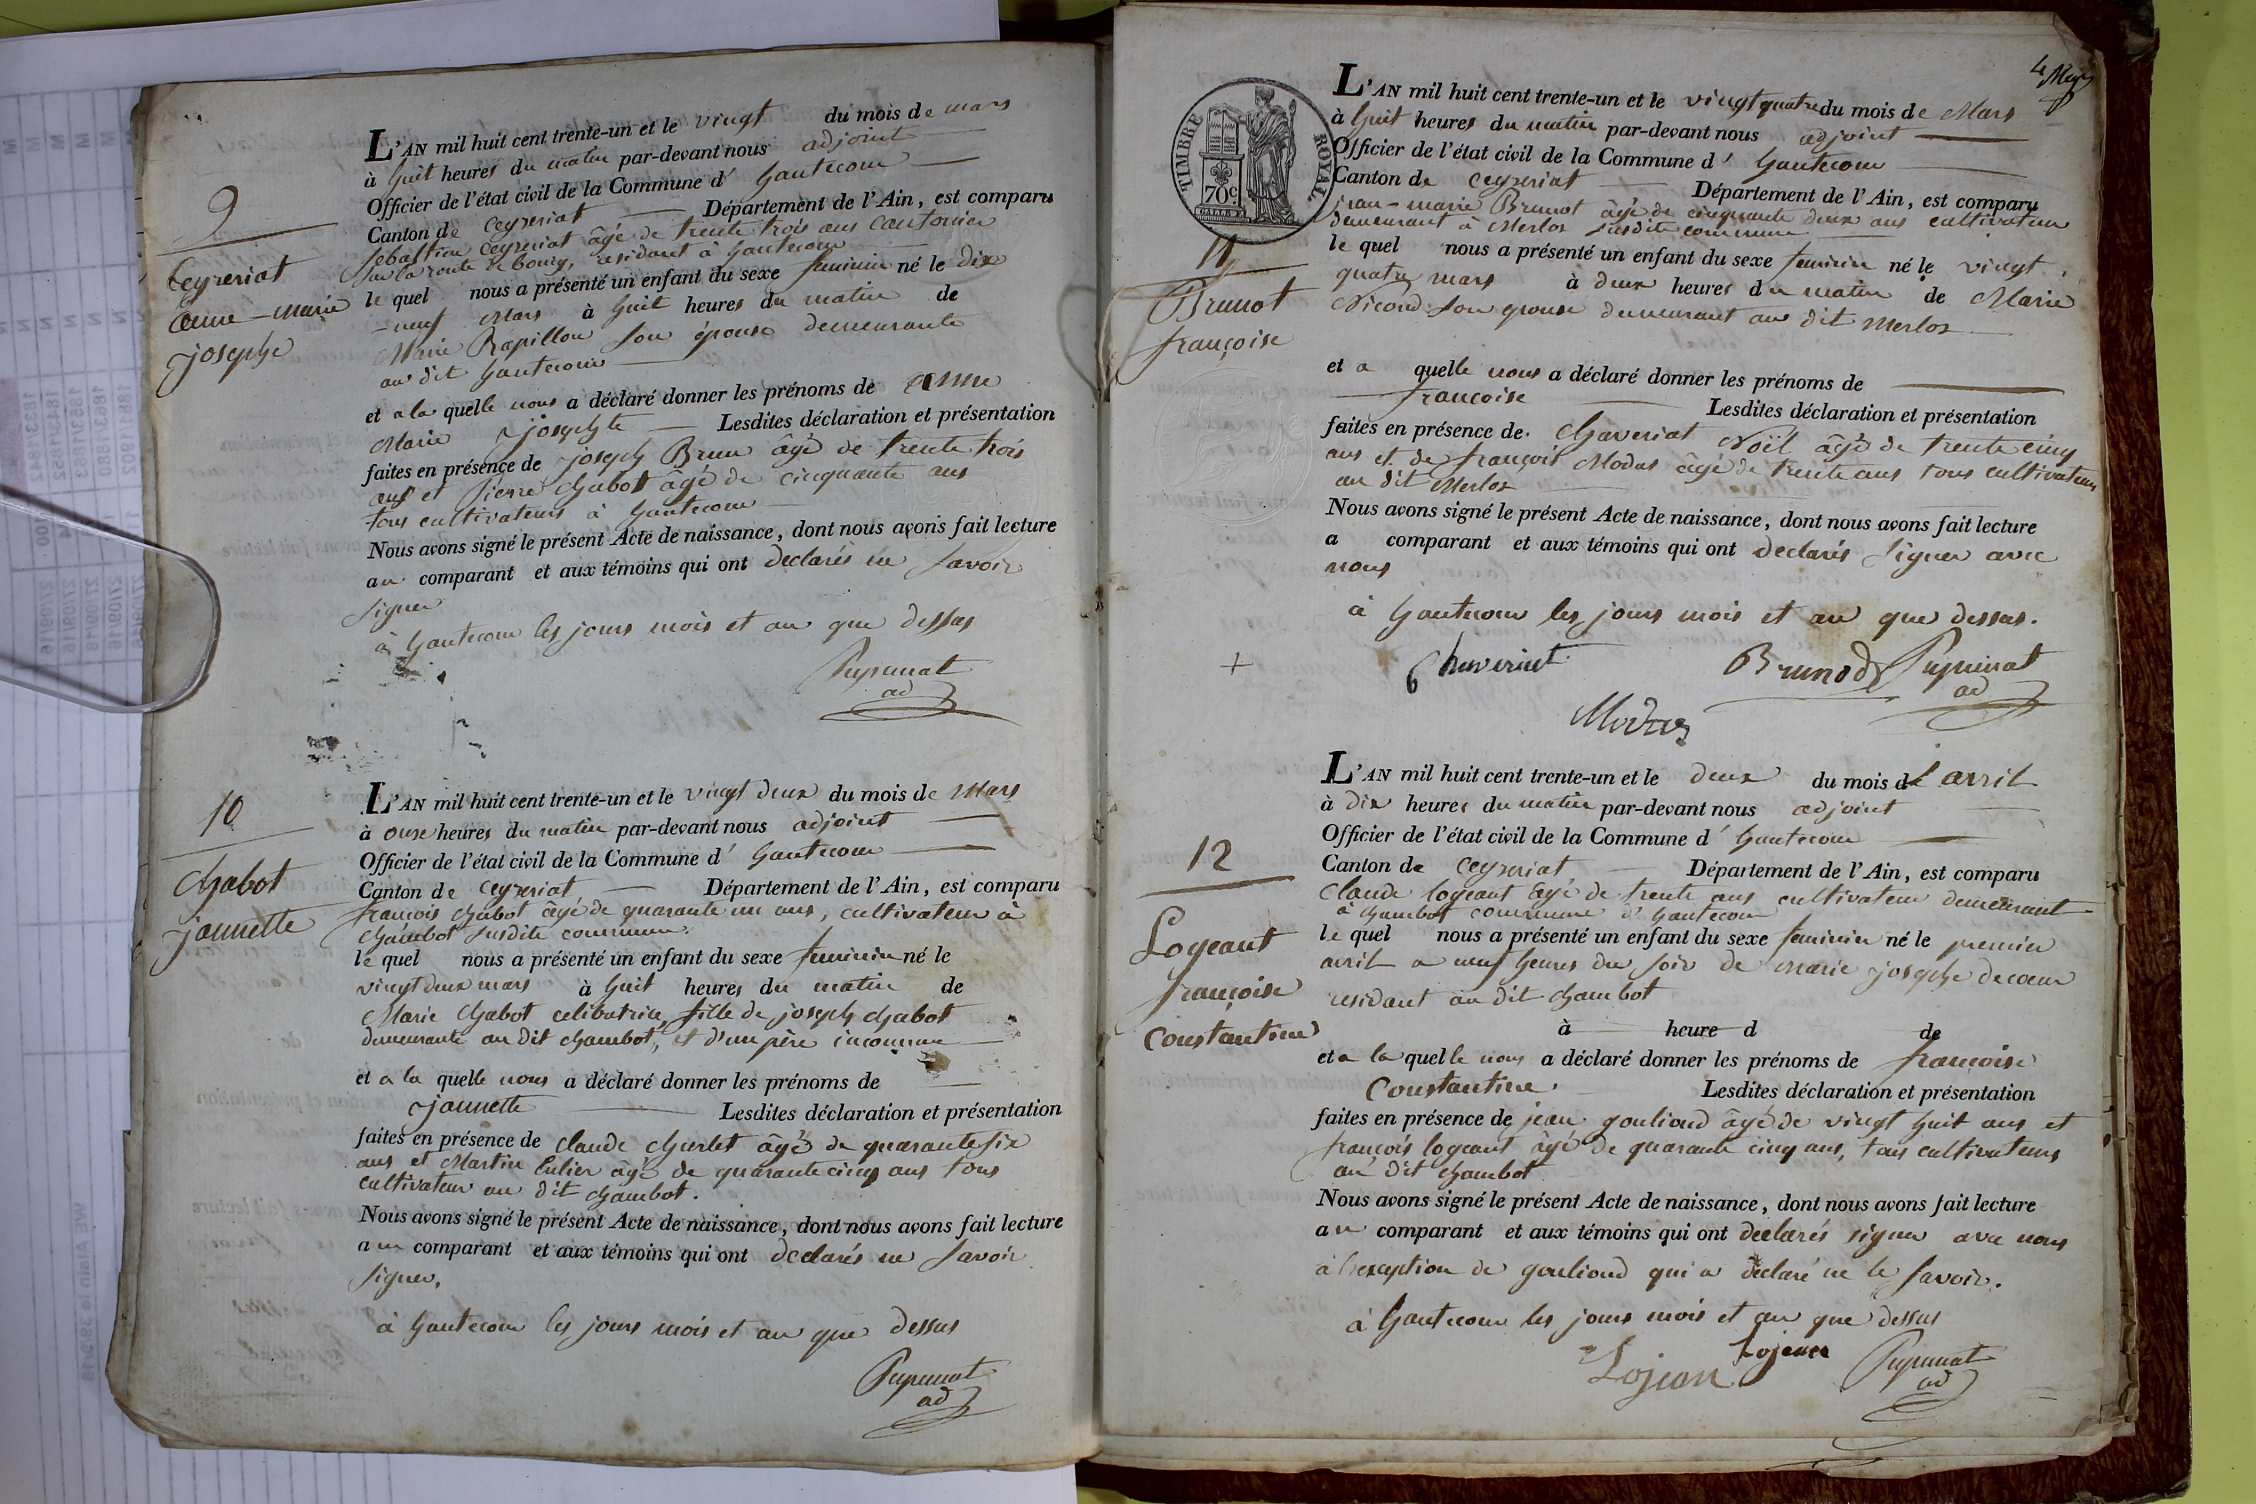 9
Ceyzeriat
Anne-marie
josephe
L'AN mil huit cent trente-un et le vingt du mois de mars
à huit heures du matin par-devant nous adjoint
Officier de l'état civil de la Commune d' hautecour
Canton de Ceyzeriat Département de l'Ain, est comparu
Sebastien Ceyzeriat âgé de trente trois ans cantonier
sur la route de bourg, residant à hautecour
le quel nous a présenté un enfant du sexe feminin né le dix
-neuf Mars à huit heures du matin de
Marie Rapillon son épouse demeurante
au dit hautecour
et a la quelle nous a déclaré donner les prénoms de anne
Marie josephte Lesdites déclaration et présentation
faites en présence de joseph Brun âgé de trente trois
ans et pierre chabot âgé de cinquante ans
tous cultivateurs à hautecour
Nous avons signé le présent Acte de naissance, dont nous avons fait lecture
au comparant et aux témoins qui ont declarés ne savoir
signer
à hautecour les jours mois et an que dessus
ad
10
chabot
jannette
L'AN mil huit cent trente-un et le vingt deux du mois de Mars
à onse heures du matin par-devant nous adjoint
Officier de l'état civil de la Commune d' hautecour
Canton de Ceyzeriat Département de l'Ain, est comparu
françois chabot âgé de quarante un ans, cultivateur à
chambot susdite commune.
le quel nous a présenté un enfant du sexe feminin né le
vingt deux mars à huit heures du matin de
Marie chabot celibatrice, fille de joseph chabot
demeurante au dit chambot, et d'un père inconnu
et a la quelle nous a déclaré donner les prénoms de
jannette Lesdites déclaration et présentation
faites en présence de claude churlet âgé de quarante six
ans et Martin âgé de quarante cinq ans tous
cultivateur au dit chambot.
Nous avons signé le présent Acte de naissance, dont nous avons fait lecture
au comparant et aux témoins qui ont declarés ne savoir
signer,
à hautecour les jours mois et an que dessus
ad
4
TIMBRE ROYAL
70c.
11
Brunot
françoise
L'AN mil huit cent trente-un et le vingt quatre du mois de Mars
à huit heures du matin par-devant nous adjoint
Officier de l'état civil de la Commune d' hautecour
Canton de ceyzeriat Département de l'Ain, est comparu
jean-marie Brunot âgé de cinquante deux ans cultivateur
demeurant à Merloz susdite commune
le quel nous a présenté un enfant du sexe feminin né le vingt
quatre mars à deux heures du matin de Marie
Nicoud son epouse demeurant au dit merloz
et a quelle nous a déclaré donner les prénoms de
francoise Lesdites déclaration et présentation
faites en présence de. chaveriat Noël âgé de trente cinq
ans et de françois Modas âgé de trente ans tous cultivateurs
au dit Merloz
Nous avons signé le présent Acte de naissance, dont nous avons fait lecture
a comparant et aux témoins qui ont declarés signer avec
nous
à hautecour les jours mois et an que dessus.
+ Chaveriat Brunod
ad
12
Logeant
françoise
Constantine
L'AN mil huit cent trente-un et le deux du mois d'avril
à dix heures du matin par-devant nous adjoint
Officier de l'état civil de la Commune d' hautecour
Canton de ceyzeriat Département de l'Ain, est comparu
claude logeant âgé de trente ans cultivateur demeurant
à chambot commune d'hautecour
le quel nous a présenté un enfant du sexe feminin né le premier
avril a neuf heures du soir de marie josephe decoeur
residant au dit chambot
à heure d de
et a la quelle nous a déclaré donner les prénoms de françoise
Constantine. Lesdites déclaration et présentation
faites en présence de jean gouliond âgé de vingt huit ans et
françois logeant âgé de quarante cinq ans, tous cultivateurs
au dit chambot
Nous avons signé le présent Acte de naissance, dont nous avons fait lecture
au comparant et aux témoins qui ont declarés signer avec nous
à l'exception de gouliond qui a déclaré ne le savoir.
à hautecour les jours mois et an que dessus
Lojean Lojean
ad